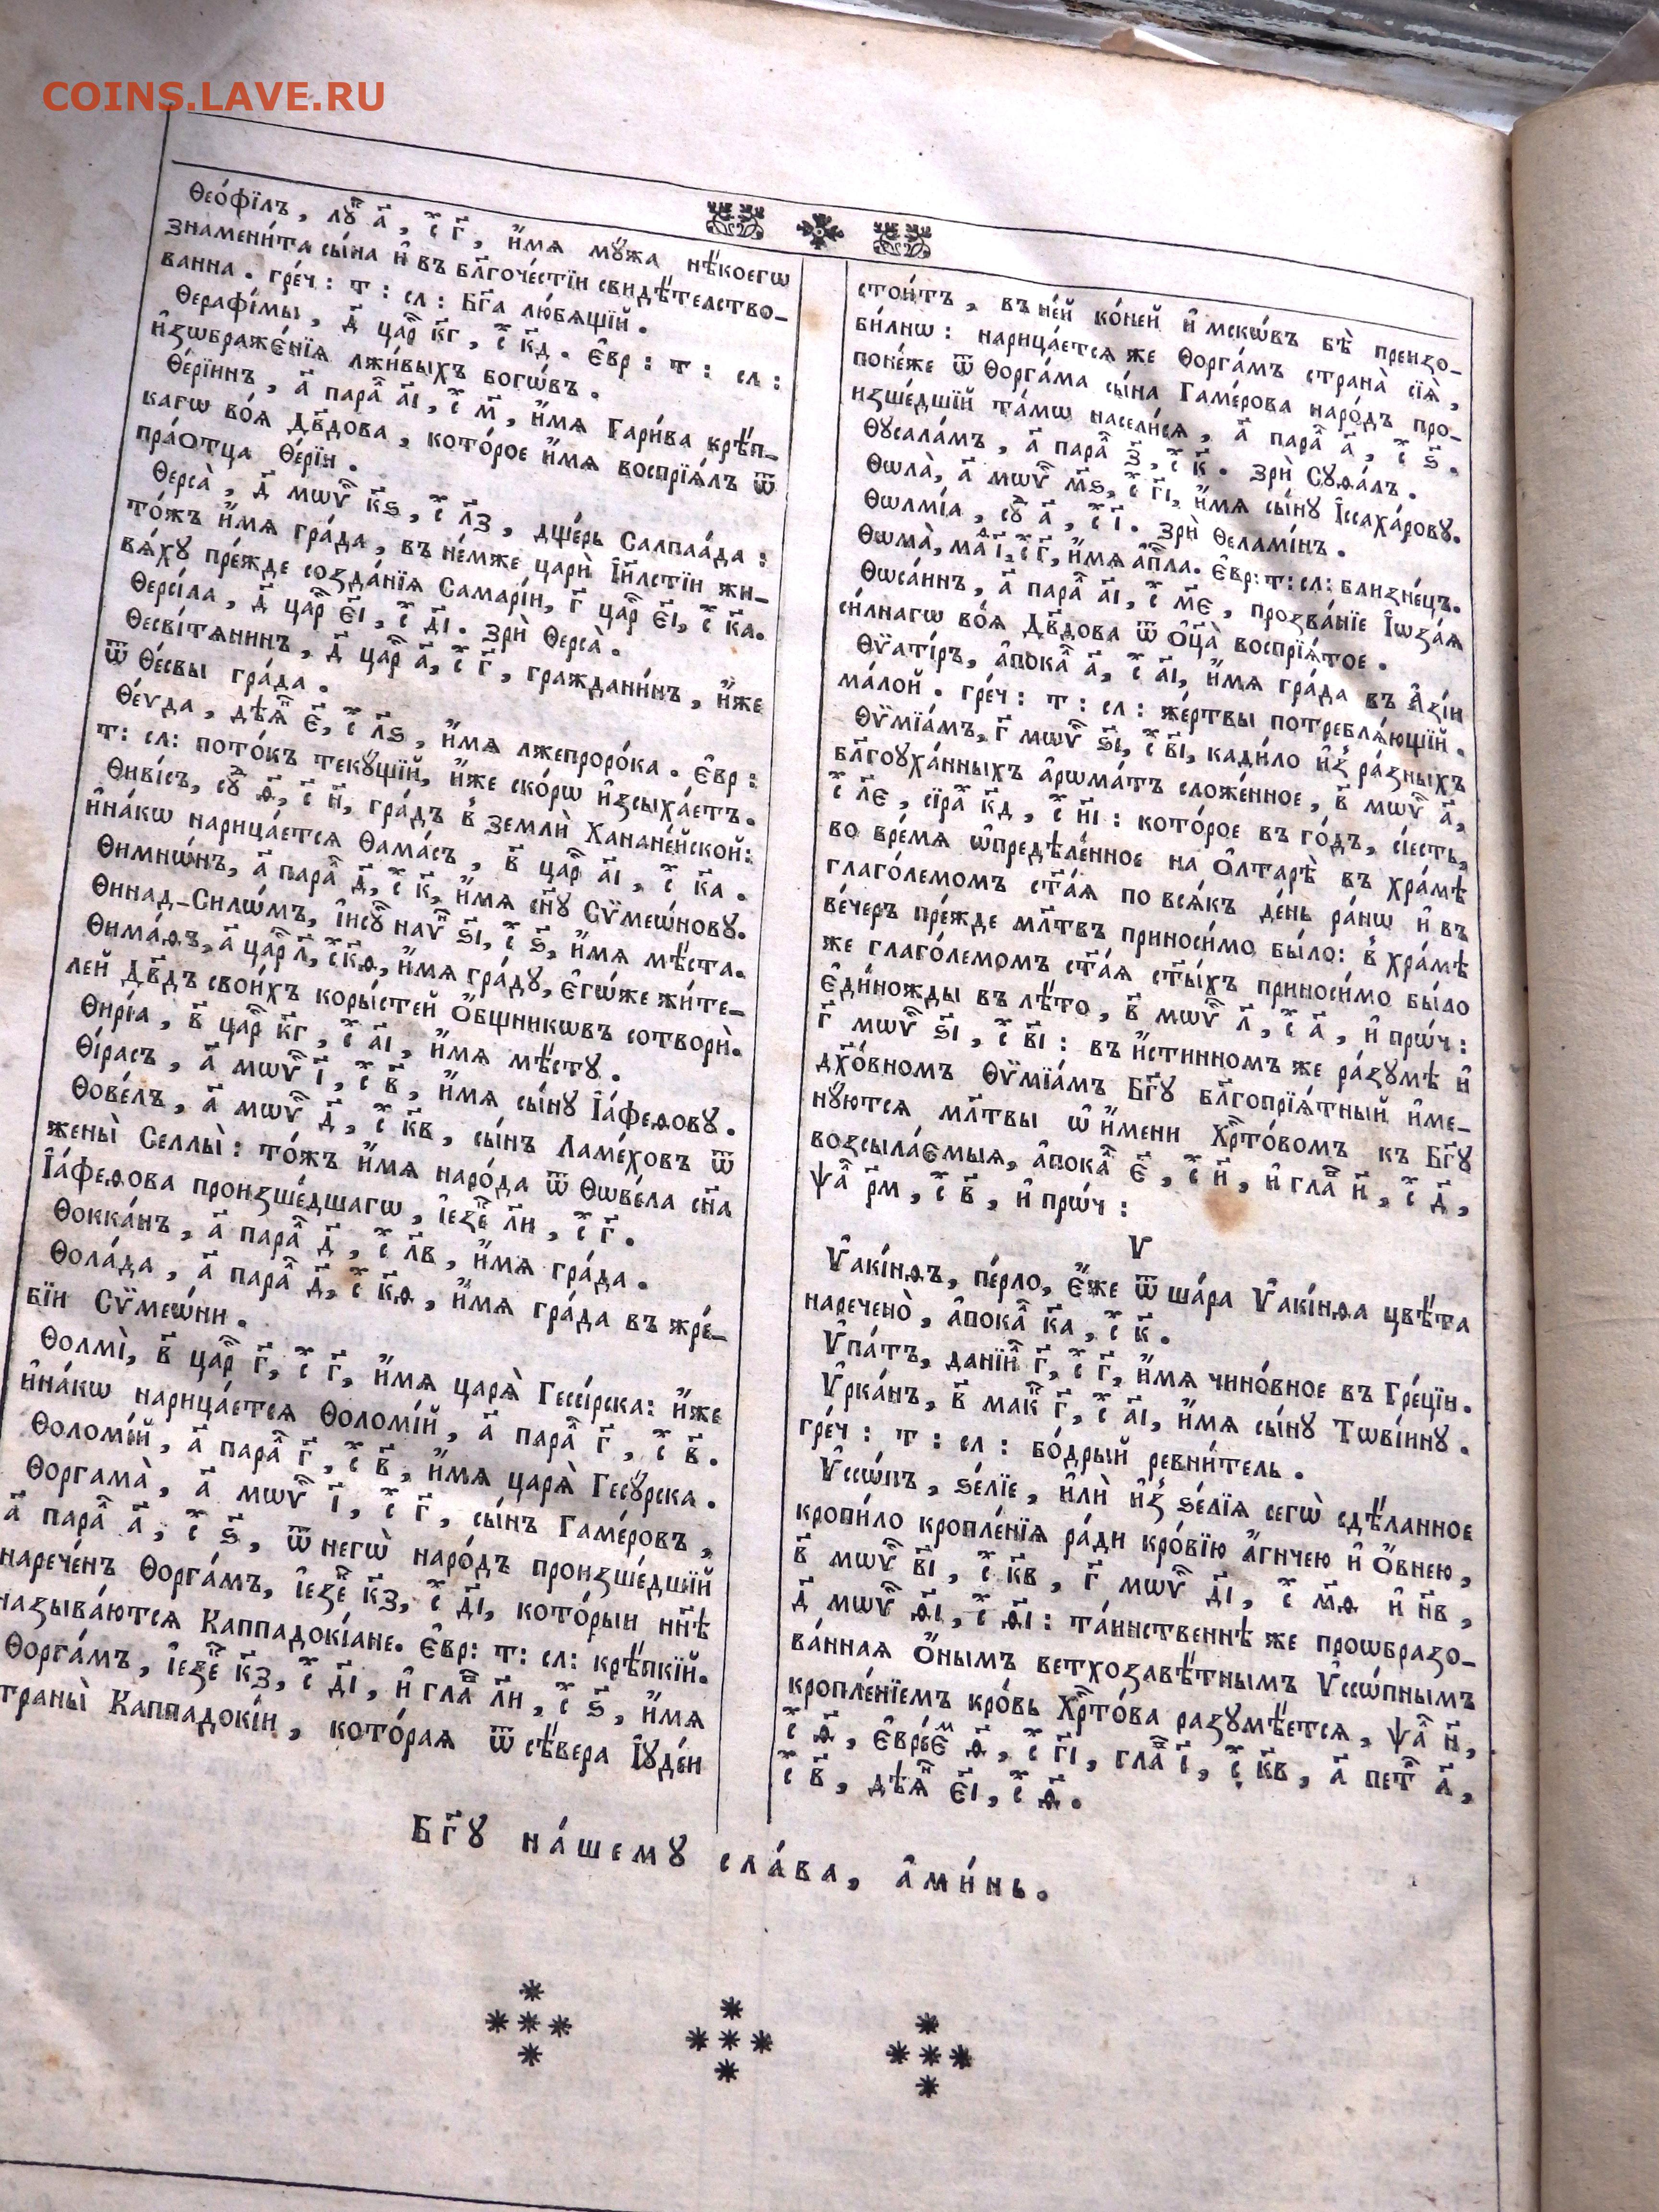 COINS.LAVE.RU
Ѳео́фїлъ, лꙋ҃ а҃, с҃ г҃, и҆́мѧ мꙋ́жа нѣ́коегѡ
знамени́та сы́на и҆ въ бл҃гоче́стїи свидѣ́телство-
ванна. гре́ч: т: сл: Бг҃а любѧщїй.
Ѳерафі́мы, д҃ цар҃ к҃г, с҃ к҃д. є҆вр: т: сл:
и҆зѡбраѯе́нїѧ лжи́выхъ богѡ́въ.
Ѳе́рїинъ, а҃ пара҃ а҃і, с҃ м҃, и҆́мѧ Гари́ва крѣ́п-
кагѡ во́ѧ Дв҃дова, кото́рое и҆́мѧ воспрїѧ́лъ ѿ
пра́ѻтца Ѳе́рїи.
Ѳерса̀, д҃ мѡѵ҃ к҃ѕ, с҃ л҃з, дще́рь Салпаа́да:
то́жъ и҆́мѧ гра́да, въ не́мже царѝ І҆и҃лстїи жи-
вѧ́хꙋ пре́жде созда́нїѧ Самарі́и, г҃ цар҃ є҃і, с҃ к҃а.
Ѳерсі́ла, д҃ цар҃ є҃і, с҃ д҃і. зрѝ Ѳерса̀.
Ѳесві́тѧнинъ, д҃ цар҃ а҃, с҃ г҃, граждани́нъ, и҆́же
ѿ Ѳе́свы гра́да.
Ѳе́ѵда, дѣѧ҃ є҃, с҃ л҃ѕ, и҆́мѧ лжепроро́ка. є҆вр:
т: сл: пото́къ текꙋ́щїй, и҆́же ско́рѡ и҆зсыха́етъ.
Ѳиві́съ, сꙋ҃ ѳ҃, с҃ н҃, гра́дъ в̾ землѝ Хананейской:
и҆на́кѡ нарица́етсѧ Ѳама́съ, в҃ цар҃ а҃і, с҃ к҃а.
Ѳимнѡ́нъ, а҃ пара҃ д҃, с҃ к҃, и҆́мѧ сн҃ꙋ Сѷмеѡ́новꙋ.
Ѳинад-Силѡ́мъ, і҆исꙋ҃ наѵ҃ ѕ҃і, с҃ ѕ҃, и҆́мѧ мѣ́ста.
Ѳима́ѳъ, а҃ цар҃ л҃, с҃ к҃ѳ, и҆́мѧ гра́дꙋ, є҆гѡ́же жи́те-
лей Дв҃дъ свои́хъ коры́стей ѻ҆́бщникѡвъ сотворѝ.
Ѳирі́а, в҃ цар҃ к҃г, с҃ а҃і, и҆́мѧ мѣ́стꙋ.
Ѳі́расъ, а҃ мѡѵ҃ і҃, с҃ в҃, и҆́мѧ сы́нꙋ І҆а́феѳовꙋ.
Ѳове́лъ, а҃ мѡѵ҃ д҃, с҃ к҃в, сы́нъ Ламе́ховъ ѿ
жены̀ Селлы̀: то́жъ и҆́мѧ наро́да ѿ Ѳѡве́ла сн҃а
І҆а́феѳова произше́дшагѡ, і҆езе҃ л҃и, с҃ г҃.
Ѳокка́нъ, а҃ пара҃ д҃, с҃ л҃в, и҆́мѧ гра́да.
Ѳола́да, а҃ пара҃ д҃, с҃ к҃ѳ, и҆́мѧ гра́да въ жре́-
бїи Сѷмеѡ́ни.
Ѳолмѝ, в҃ цар҃ г҃, с҃ г҃, и҆́мѧ царѧ̀ Гессі́рска: и҆́же
и҆на́кѡ нарица́етсѧ Ѳоломі́й, а҃ пара҃ г҃, с҃ в҃.
Ѳоломе́й, а҃ пара҃ г҃, с҃ в҃, и҆́мѧ царѧ̀ Гесꙋ́рска.
Ѳоргама̀, а҃ мѡѵ҃ і҃, с҃ г҃, сы́нъ Гаме́ровъ,
а҃ пара҃ а҃, с҃ ѕ҃, ѿ негѡ̀ наро́дъ произше́дшїй
нарече́нъ Ѳорга́мъ, і҆езе҃ к҃з, с҃ д҃і, кото́рыи нн҃ѣ
называ́ютсѧ Каппадокі́ане. є҆вр: т: сл: крѣ́пкїй.
Ѳорга́мъ, і҆езе҃ к҃з, с҃ д҃і, и҆ гла҃ л҃и, с҃ ѕ҃, и҆́мѧ
траны̀ Каппадокі́и, кото́раѧ ѿ сѣ́вера І҆ꙋде́и
стои́тъ, въ не́й ко́ней и҆ мскѡ́въ бѣ̀ преизо-
би́лнѡ: нарица́етсѧ же Ѳорга́мъ страна̀ сїѧ̀,
поне́же ѿ Ѳорга́ма сы́на Гаме́рова наро́дъ про-
изше́дшїй та́мѡ насели́сѧ, а҃ пара҃ а҃, с҃ ѕ҃.
Ѳꙋсала́мъ, а҃ пара҃ з҃, с҃ к҃. зрѝ Сꙋѳа́лъ.
Ѳѡла̀, а҃ мѡѵ҃ м҃ѕ, с҃ г҃і, и҆́мѧ сы́нꙋ І҆ссаха́ровꙋ.
Ѳѡлмі́а, сꙋ҃ а҃, с҃ і҃. зрѝ Ѳеламі́нъ.
Ѳѡма̀, ма҃ і҃, с҃ г҃, и҆́мѧ а҆п҃ла. є҆вр: т: сл: близне́цъ.
Ѳѡса́инъ, а҃ пара҃ а҃і, с҃ м҃є, прозва́нїе І҆ѡза́ѧ
си́лнагѡ во́ѧ Дв҃дова ѿ ѻ҆ц҃а̀ воспрїѧ́тое.
Ѳѷаті́ръ, а҆пока҃ а҃, с҃ а҃і, и҆́мѧ гра́да въ А҆зі́и
ма́лой. гре́ч: т: сл: же́ртвы потреблѧ́ющїй.
Ѳѷмїа́мъ, г҃ мѡѵ҃ ѕ҃і, с҃ в҃і, кади́ло и҆з̾ ра́зныхъ
бл҃гоꙋха́нныхъ а҆рѡма́тъ сложе́нное, в҃ мѡѵ҃ а҃,
с҃ л҃є, сїра҃ к҃д, с҃ н҃і: кото́рое въ го́дъ, сі́есть,
во вре́мѧ ѡ҆предѣле́нное на ѻ҆лтарѣ̀ въ хра́мѣ
глаго́лемомъ ст҃а́ѧ по всѧ́къ де́нь ра́нѡ и҆ въ
ве́черъ пре́жде мл҃твъ приноси́мо бы́ло: в̾ хра́мѣ
же глаго́лемомъ ст҃а́ѧ ст҃ы́хъ приноси́мо бы́ло
є҆ди́ножды въ лѣ́то, в҃ мѡѵ҃ л҃, с҃ а҃, и҆ прѡ́ч:
г҃ мѡѵ҃ ѕ҃і, с҃ в҃і: въ и҆́стинномъ же ра́зꙋмѣ и҆
дх҃о́вномъ Ѳѷмїа́мъ Бг҃ꙋ бл҃гопрїѧ́тный и҆ме-
нꙋ́ютсѧ мл҃твы ѡ҆ и҆́мени Хр҃то́вомъ къ Бг҃ꙋ
возсыла́ємыѧ, а҆пока҃ є҃, с҃ и҃, и҆ гла҃ и҃, с҃ д҃,
ѱа҃ р҃м, с҃ в҃, и҆ прѡ́ч:
Ѵ
Ѵ҆акі́нѳъ, пе́рло, є҆́же ѿ ша́ра Ѵ҆акі́нѳа цвѣ́та
наречено̀, а҆пока҃ к҃а, с҃ к҃.
Ѵ҆па́тъ, данїи҃ г҃, с҃ г҃, и҆́мѧ чино́вное въ Гре́цїи.
Ѵ҆рка́нъ, в҃ мак҃ г҃, с҃ а҃і, и҆́мѧ сы́нꙋ Тѡві́инꙋ.
гре́ч: т: сл: бо́дрый ревни́тель.
Ѵ҆ссѡ́пъ, ѕе́лїе, и҆лѝ и҆з̾ ѕе́лїѧ сегѡ̀ сдѣ́ланное
кропи́ло кропле́нїѧ ра́ди кро́вїю а҆́гнчею и҆ ѻ҆́внею,
в҃ мѡѵ҃ в҃і, с҃ к҃в, г҃ мѡѵ҃ д҃і, с҃ м҃ѳ и҆ н҃в,
д҃ мѡѵ҃ ѳ҃і, с҃ ѳ҃і: та́инственнѣ же проѡбразо-
ва́нная ѻ҆́нымъ ветхозавѣ́тнымъ Ѵ҆ссѡ́пнымъ
кропле́нїемъ кро́вь Хр҃то́ва разꙋмѣ́етсѧ, ѱа҃ н҃,
с҃ ѳ҃, є҆вре́є҃ ѳ҃, с҃ г҃і, гла҃ і҃, с҃ к҃в, а҃ пет҃ а҃,
с҃ в҃, дѣѧ҃ є҃і, с҃ ѳ҃.
Бг҃ꙋ на́шемꙋ сла́ва, а҆ми́нь.